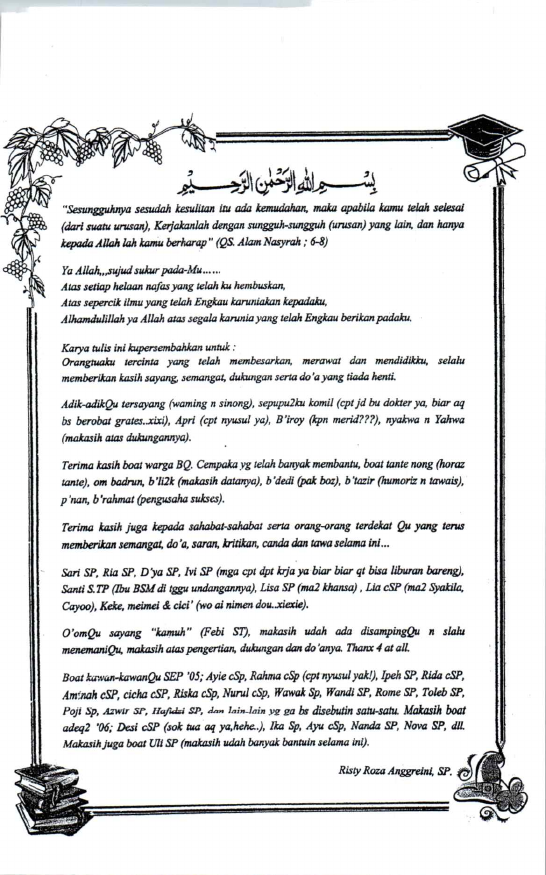 بسم الله الرحمن الرحيم
"Sesungguhnya sesudah kesulitan itu ada kemudahan, maka apabila kamu telah selesai
(dari suatu urusan), Kerjakanlah dengan sungguh-sungguh (urusan) yang lain, dan hanya
kepada Allah lah kamu berharap" (QS. Alam Nasyrah ; 6-8)
Ya Allah,,,sujud sukur pada-Mu......
Atas setiap helaan nafas yang telah ku hembuskan,
Atas sepercik ilmu yang telah Engkau karuniakan kepadaku,
Alhamdulillah ya Allah atas segala karunia yang telah Engkau berikan padaku.
Karya tulis ini kupersembahkan untuk :
Orangtuaku tercinta yang telah membesarkan, merawat dan mendidikku, selalu
memberikan kasih sayang, semangat, dukungan serta do'a yang tiada henti.
Adik-adikQu tersayang (waming n sinong), sepupu2ku komil (cpt jd bu dokter ya, biar aq
bs berobat grates..xixi), Apri (cpt nyusul ya), B'iroy (kpn merid???), nyakwa n Yahwa
(makasih atas dukungannya).
Terima kasih boat warga BQ. Cempaka yg telah banyak membantu, boat tante nong (horaz
tante), om badrun, b'li2k (makasih datanya), b'dedi (pak boz), b'tazir (humoriz n tawais),
p'nan, b'rahmat (pengusaha sukses).
Terima kasih juga kepada sahabat-sahabat serta orang-orang terdekat Qu yang terus
memberikan semangat, do'a, saran, kritikan, canda dan tawa selama ini...
Sari SP, Ria SP, D'ya SP, Ivi SP (mga cpt dpt krja ya biar biar qt bisa liburan bareng),
Santi S.TP (Ibu BSM di tggu undangannya), Lisa SP (ma2 khansa) , Lia cSP (ma2 Syakila,
Cayoo), Keke, meimei & cici' (wo ai nimen dou..xiexie).
O'omQu sayang "kamuh" (Febi ST), makasih udah ada disampingQu n slalu
menemaniQu, makasih atas pengertian, dukungan dan do'anya. Thanx 4 at all.
Boat kawan-kawanQu SEP '05; Ayie cSp, Rahma cSp (cpt nyusul yak!), Ipeh SP, Rida cSP,
Aminah cSP, cicha cSP, Riska cSp, Nurul cSp, Wawak Sp, Wandi SP, Rome SP, Toleb SP,
Poji Sp, Azwir SP, Hafidzi SP, dan lain-lain yg ga bs disebutin satu-satu. Makasih boat
adeq2 '06; Desi cSP (sok tua aq ya,hehe..), Ika Sp, Ayu cSp, Nanda SP, Nova SP, dll.
Makasih juga boat Uli SP (makasih udah banyak bantuin selama ini).
Risty Roza Anggreini, SP.